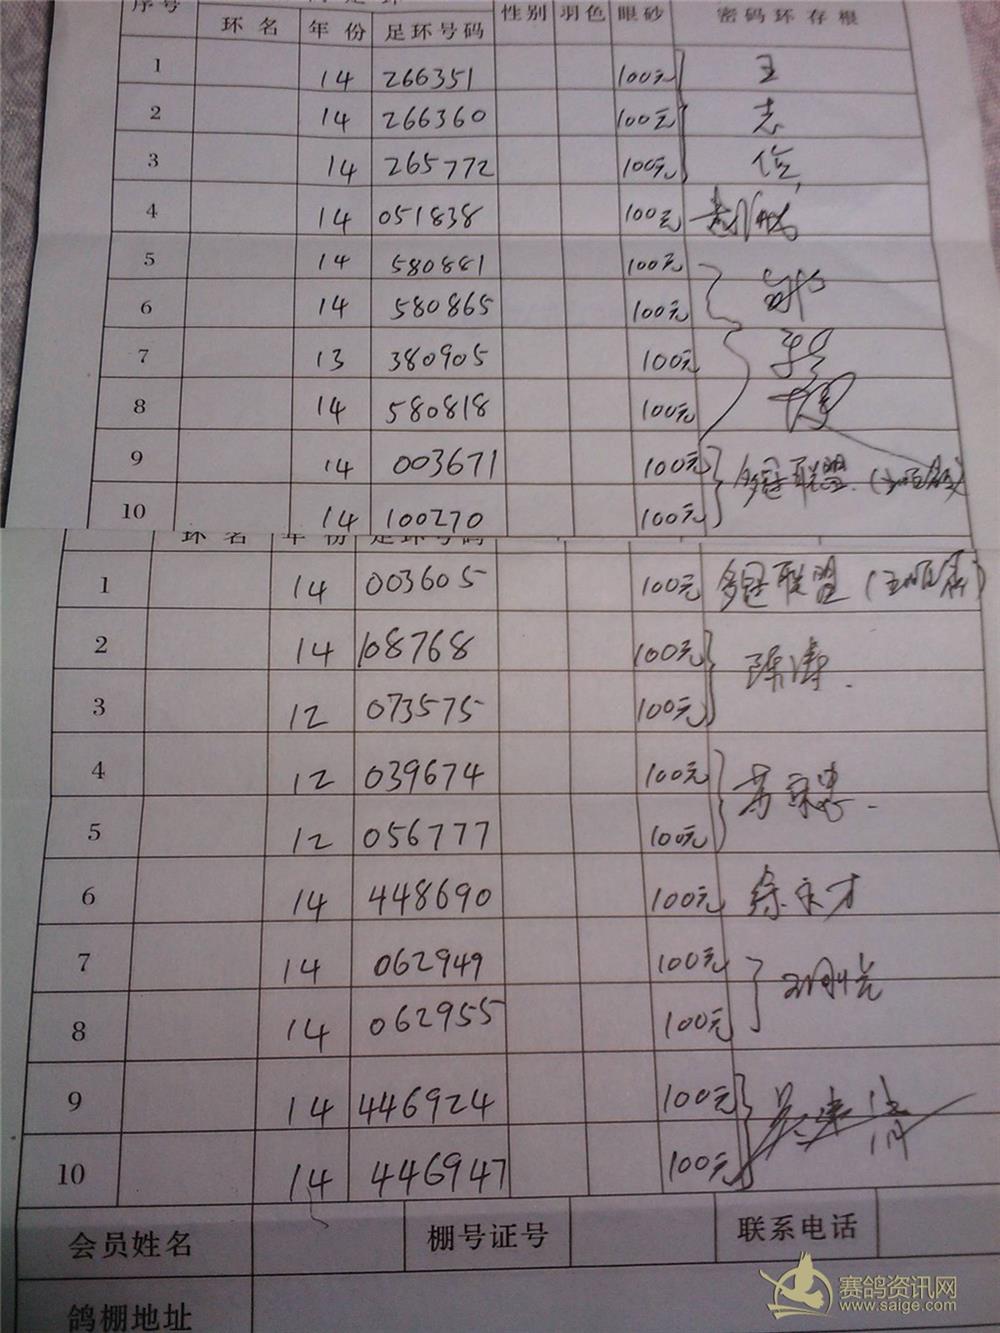 序号 性别 羽色 眼砂 密码环存根
环名 年份 足环号码
1 14 266351 100元 王
2 14 266360 100元 志
3 14 265772 100元 位
4 14 051838 100元
5 14 580881 100元
6 14 580865 100元
7 13 380905 100元
8 14 580818 100元
9 14 003671 100元 多冠联盟
10 14 100270 100元
环名 年份 足环号码
1 14 003605 100元 多冠联盟
2 14 108768 100元 陈涛
3 12 073575 100元
4 12 039674 100元
5 12 056777 100元
6 14 448690 100元 徐永才
7 14 062949 100元
8 14 062955 100元
9 14 446924 100元
10 14 446947 100元
会员姓名 棚号证号 联系电话
鸽棚地址
赛鸽资讯网
www.saige.com